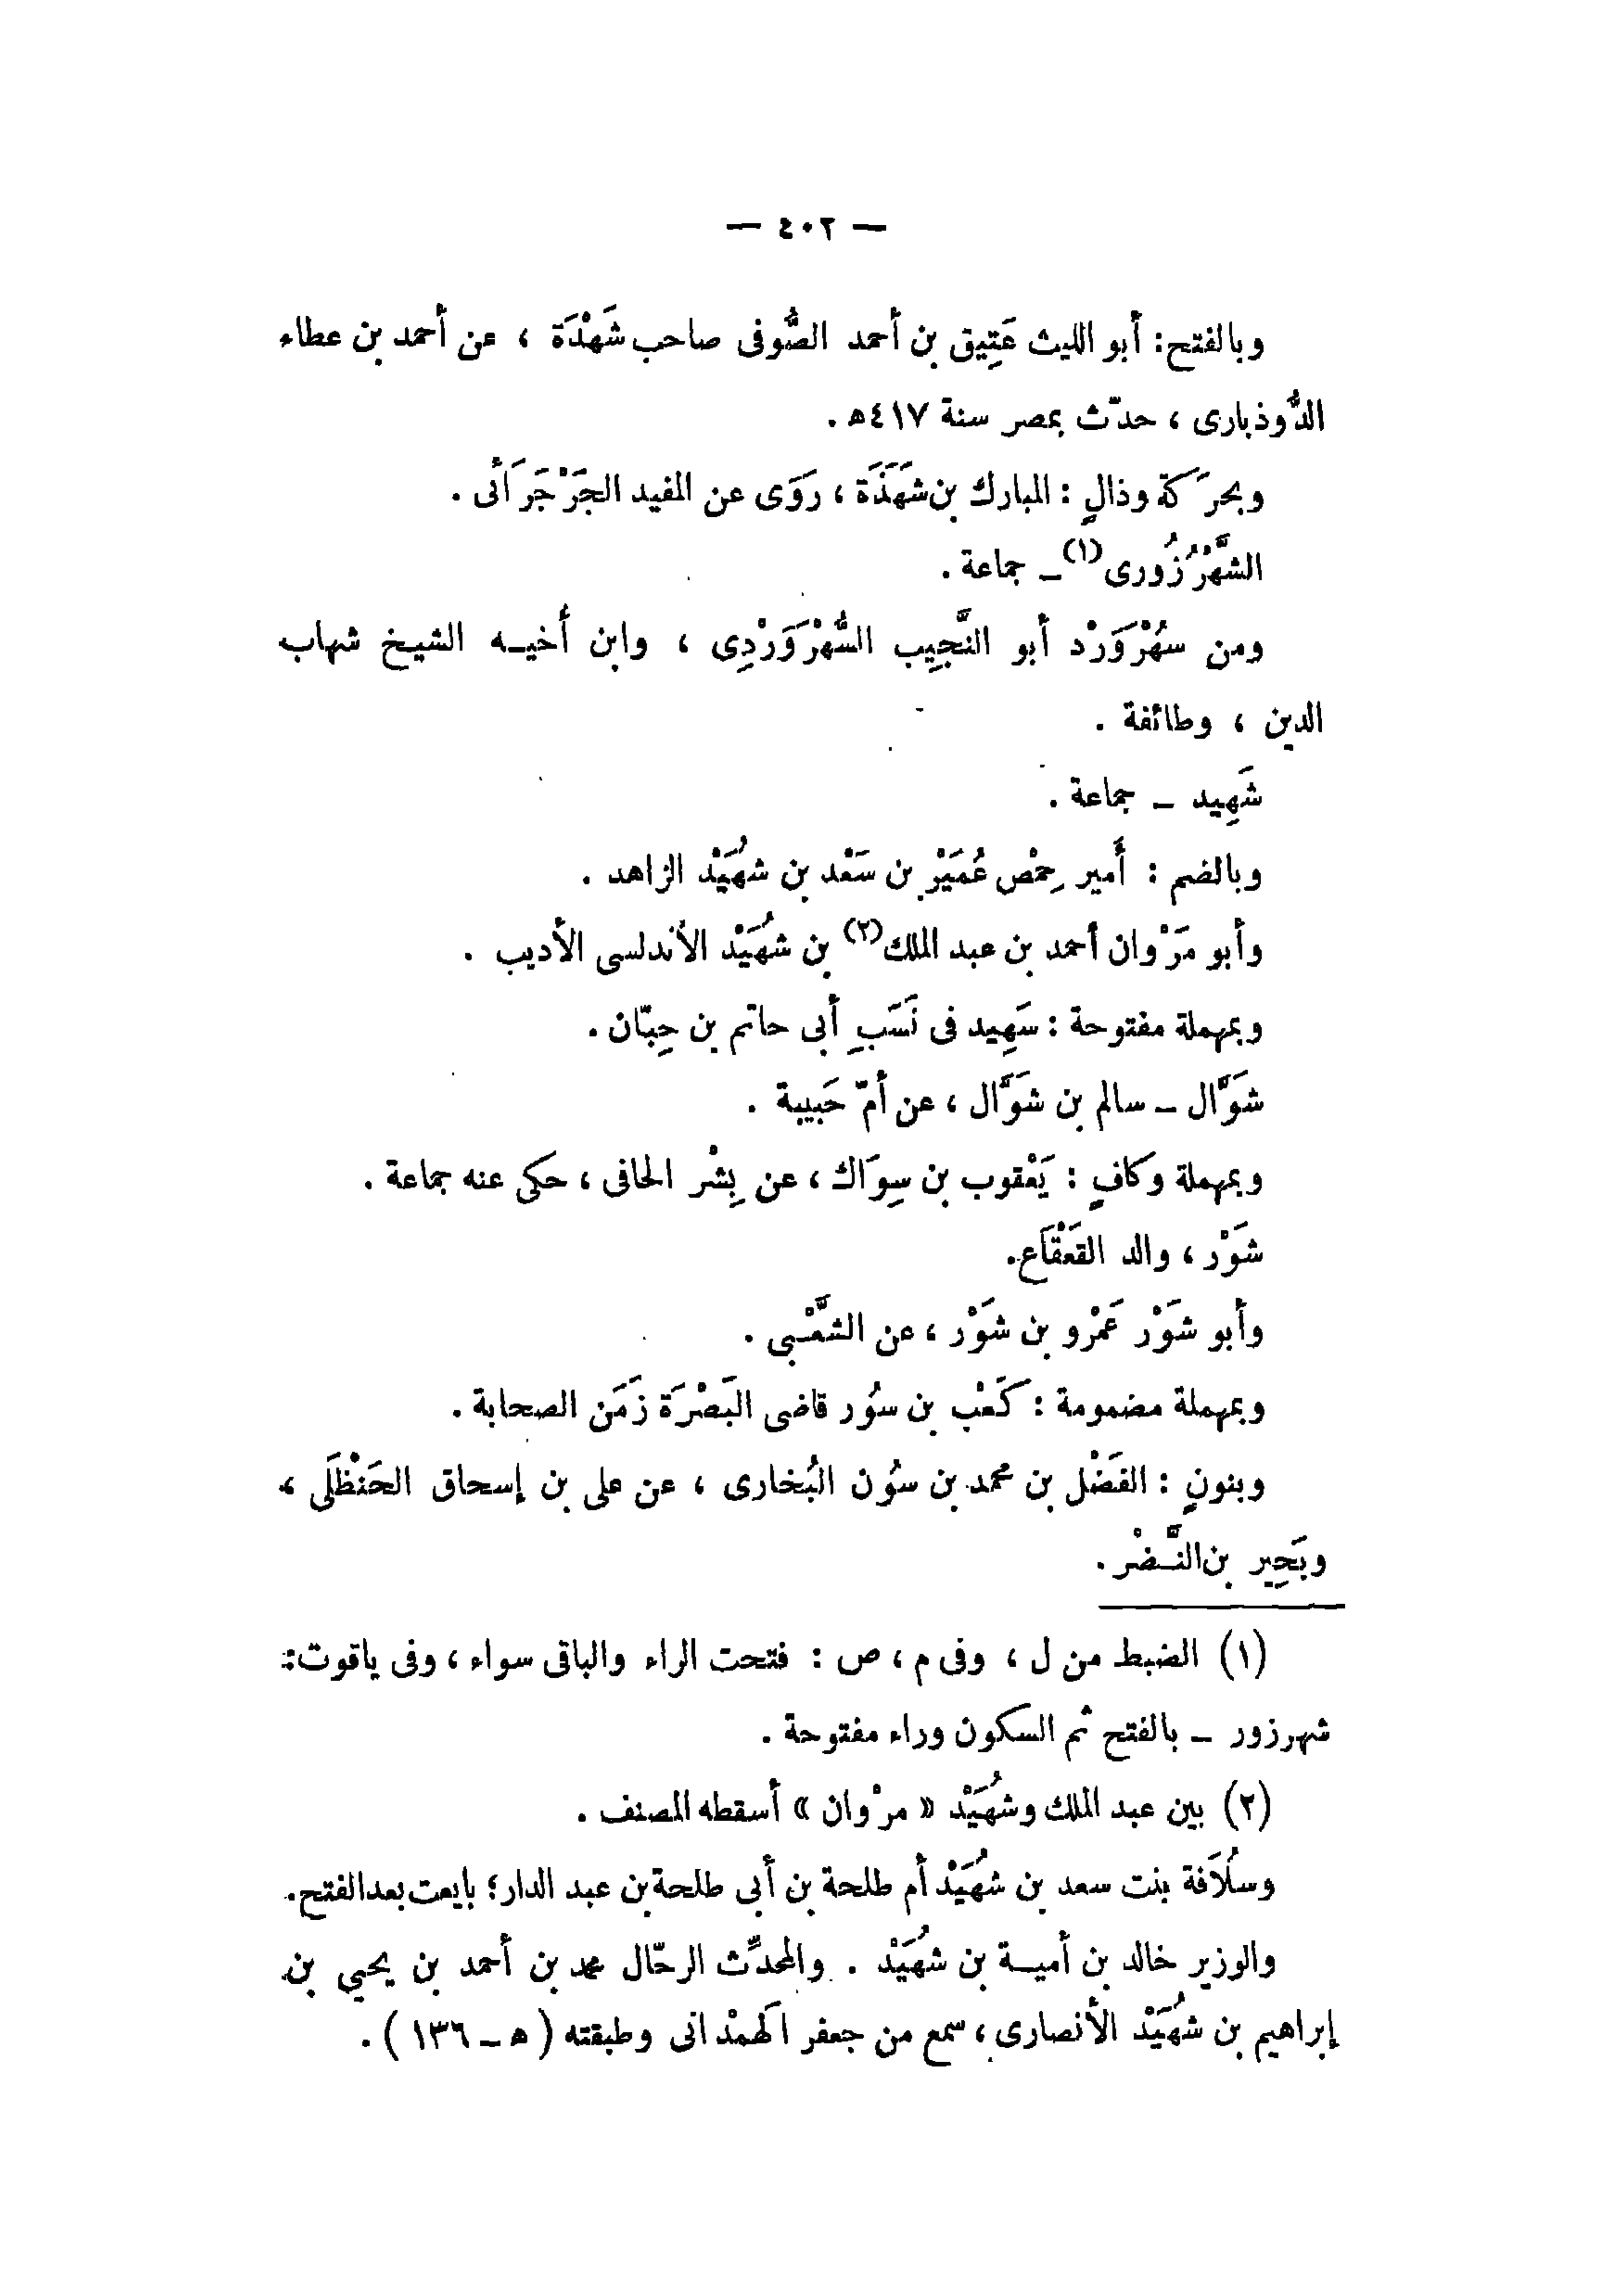 — ٤٠٢ —
وبالفتح: أبو الليث عَتِيق بن أحمد الصُّوفى صاحب شَهْدَة ، عن أحمد بن عطاء
الدُّوذبارى ، حدّث بمصر سنة ٤١٧ه .
وبحرَكة وذالٍ : المبارك بن شَهَذَة ، رَوَى عن المفيد الجَرْجَرَأنى .
الشَّهْرُزُورى(١) – جماعة .
ومن سُهْرَوَرْد أبو النَّجِيب السُّهْرَوَرْدِى ، وابن أخيـه الشيخ شهاب
الدين ، وطائفة .
شَهِيد – جماعة .
وبالضم : أَمير حِمْص عُمَيْر بن سَعْد بن شُهَيْد الزاهد .
وأبو مَرْوان أحمد بن عبد الملك(٢) بن شُهَيْد الأندلسى الأديب .
وبمهملة مفتوحة : سَهِيد فى نَسَبِ أبى حاتم بن حِبّان .
شَوَّال – سالم بن شَوَّال ، عن أمّ حَبيبة .
وبمهملة وكافٍ : يَعْقوب بن سِوَاك ، عن بِشْر الحافى ، حكى عنه جماعة .
شَوْر ، والد القَعْقَاع .
وأبو شَوْر عَمْرو بن شَوْر ، عن الشَّعْبى .
وبمهملة مضمومة : كَعْب بن سُور قاضى البَصْرَة زَمَن الصحابة .
وبنونٍ : الفَضْل بن محمد بن سُون البُخارى ، عن على بن إسحاق الحَنْظَلَى ،
وبَحِير بن النَّـضْر .
(١) الضبط من ل ، وفى م ، ص : فتحت الراء والباقى سواء ، وفى ياقوت :
شهرزور – بالفتح ثم السكون وراء مفتوحة .
(٢) بين عبد الملك وشُهَيْد « مرْوان » أسقطه المصنف .
وسُلَافة بنت سعد بن شُهَيْد أم طلحة بن أبى طلحة بن عبد الدار؛ بايعت بعد الفتح.
والوزير خالد بن أميـة بن شُهَيْد . والمحدِّث الرحّال محمد بن أحمد بن يحيى بن
إبراهيم بن شُهَيْد الأنصارى ، سمع من جعفر الَهمْدانى وطبقته ( ه – ١٣٦ ) .